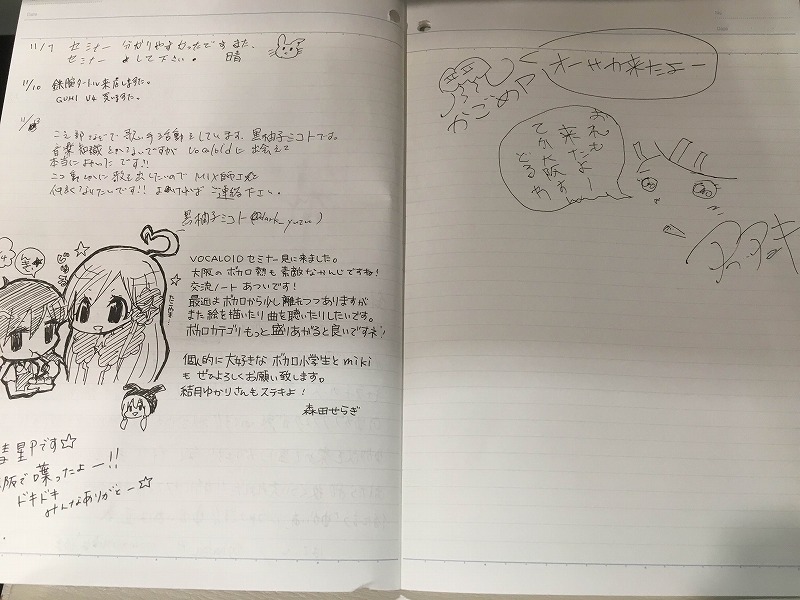 11/7 セミナー 分かりやすかったです また、
セミナー よして下さい。 晴
11/10 鉄腕タートル来店しました。
GUMI V4 買いました。
こえ部などで歌い手活動をしています、黒柚子ミコトです。
音楽知識もないですが Vocaloidに出会えて
本当によかったです!!
ニコ動とかに歌を出したいのでMIX師工に
仲良くなりたいです!! よければご連絡下さい。
黒柚子ミコト(@dark_yuzu)
VOCALOIDセミナー見に来ました。
大阪のボカロ熱も素敵なかんじですね!
交流ノートあついです!
最近はボカロから少し離れつつありますが
また絵を描いたり曲を聴いたりしたいです。
ボカロカテゴリもっと盛りあがると良いですネ!
個人的に大好きな ボカロ小学生とmiki
も ぜひよろしくお願い致します。
結月ゆかりさんもステキよ!
森田せらぎ
彗星Pです☆
阪で喋ったよー!!
ドキドキ
みんなありがとー☆
オーサカ来たよー
かごめP
おれも
来たよー
てか大阪す
どる